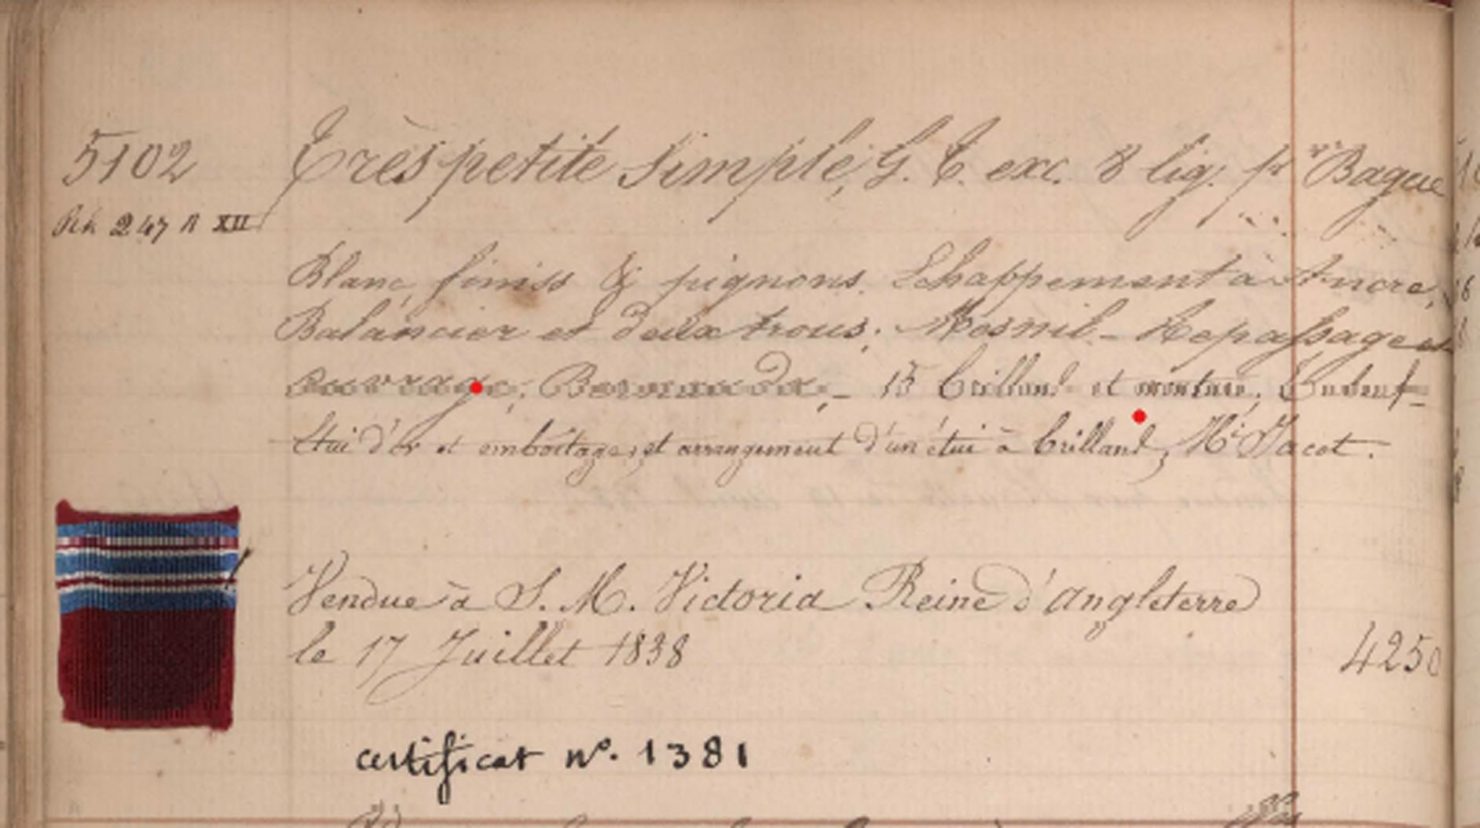 5102 Très petite simple, G. T. exc. 8 lig. pr Bague
247 R XII
Blanc, finiss & pignons. Echappement à Ancre,
Balancier et deux trous. Mesnil - Repassage et
ouvrage, - 15 brillans et monture,
Etui d'or et emboîtage, et arrangement d'un étui à brillans, Hi Jacot.
Vendue à S. M. Victoria Reine d'Angleterre
le 17 Juillet 1838 4250
certificat no. 1381